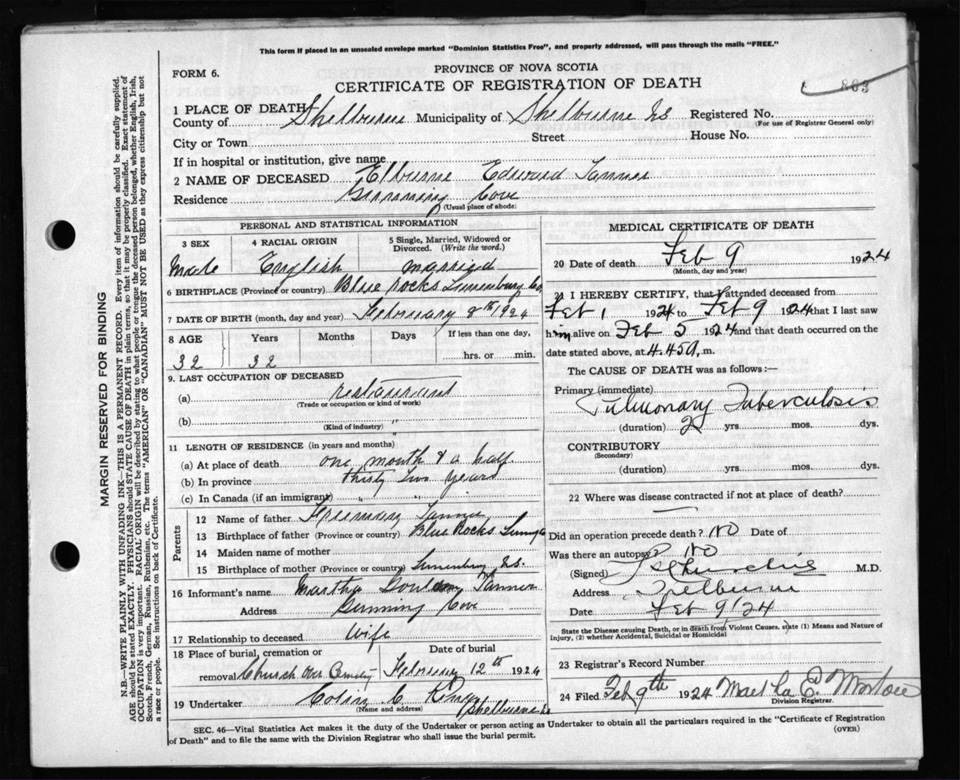 This form if placed in an unsealed envelope marked "Dominion Statistics Free", and properly addressed, will pass through the mails "FREE."
FORM 6.
PROVINCE OF NOVA SCOTIA
CERTIFICATE OF REGISTRATION OF DEATH
863
1 PLACE OF DEATH
County of Shelburne Municipality of Shelburne NS Registered No.
(For use of Registrar General only)
City or Town Street House No.
If in hospital or institution, give name
2 NAME OF DECEASED Elbourne Edward Tanner
Residence Gunning Cove
(Usual place of abode)
PERSONAL AND STATISTICAL INFORMATION
3 SEX 4 RACIAL ORIGIN 5 Single, Married, Widowed or Divorced. (Write the word.)
Male English married
6 BIRTHPLACE (Province or country) Blue Rocks Lunenburg Co
7 DATE OF BIRTH (month, day and year) February 8th 1924
8 AGE Years Months Days If less than one day,
32 32 hrs. or min.
9. LAST OCCUPATION OF DECEASED
(a) restaurant
(Trade or occupation or kind of work)
(b) "
(Kind of industry)
11 LENGTH OF RESIDENCE (in years and months)
(a) At place of death one month & a half
(b) In province thirty two years
(c) In Canada (if an immigrant) " "
Parents
12 Name of father Tanner
13 Birthplace of father (Province or country) Blue Rocks
14 Maiden name of mother
15 Birthplace of mother (Province or country) Lunenburg NS.
16 Informant's name Martha Tanner
Address Gunning Cove
17 Relationship to deceased Wife
18 Place of burial, cremation or removal Date of burial
Church Over Cemetry February 12th 1924
19 Undertaker Colin C
(Name and address) Shelburne NS
MEDICAL CERTIFICATE OF DEATH
20 Date of death Feb 9 1924
(Month, day and year)
21 I HEREBY CERTIFY, that I attended deceased from
Feb 1 1924 to Feb 9 1924 that I last saw
him alive on Feb 5 1924 and that death occurred on the
date stated above, at 4.45 a, m.
The CAUSE OF DEATH was as follows:—
Primary (immediate)
Pulmonary Tuberculosis
(duration) 2 yrs. mos. dys.
CONTRIBUTORY
(Secondary)
(duration) yrs. mos. dys.
22 Where was disease contracted if not at place of death?
Did an operation precede death? NO Date of
Was there an autopsy? NO
(Signed) M.D.
Address Shelburne
Date Feb 9/24
State the Disease causing Death, or in death from Violent Causes, state (1) Means and Nature of
Injury, (2) whether Accidental, Suicidal or Homicidal
23 Registrar's Record Number
24 Filed Feb 9th 1924 Martha E.
Division Registrar.
SEC. 46—Vital Statistics Act makes it the duty of the Undertaker or person acting as Undertaker to obtain all the particulars required in the "Certificate of Registration
of Death" and to file the same with the Division Registrar who shall issue the burial permit.
(OVER)
MARGIN RESERVED FOR BINDING
N.B.—WRITE PLAINLY WITH UNFADING INK—THIS IS A PERMANENT RECORD. Every item of information should be carefully supplied.
AGE should be stated EXACTLY. PHYSICIANS should STATE CAUSE OF DEATH in plain terms, so that it may be properly classified. Exact statement of
OCCUPATION is very important. RACIAL ORIGIN will be described by stating to what people or tongue the deceased person belonged, whether English, Irish,
Scotch, French, German, Russian, Ruthenian, etc. The terms "AMERICAN" or "CANADIAN" MUST NOT BE USED as they express citizenship but not
a race or people. See instructions on back of Certificate.